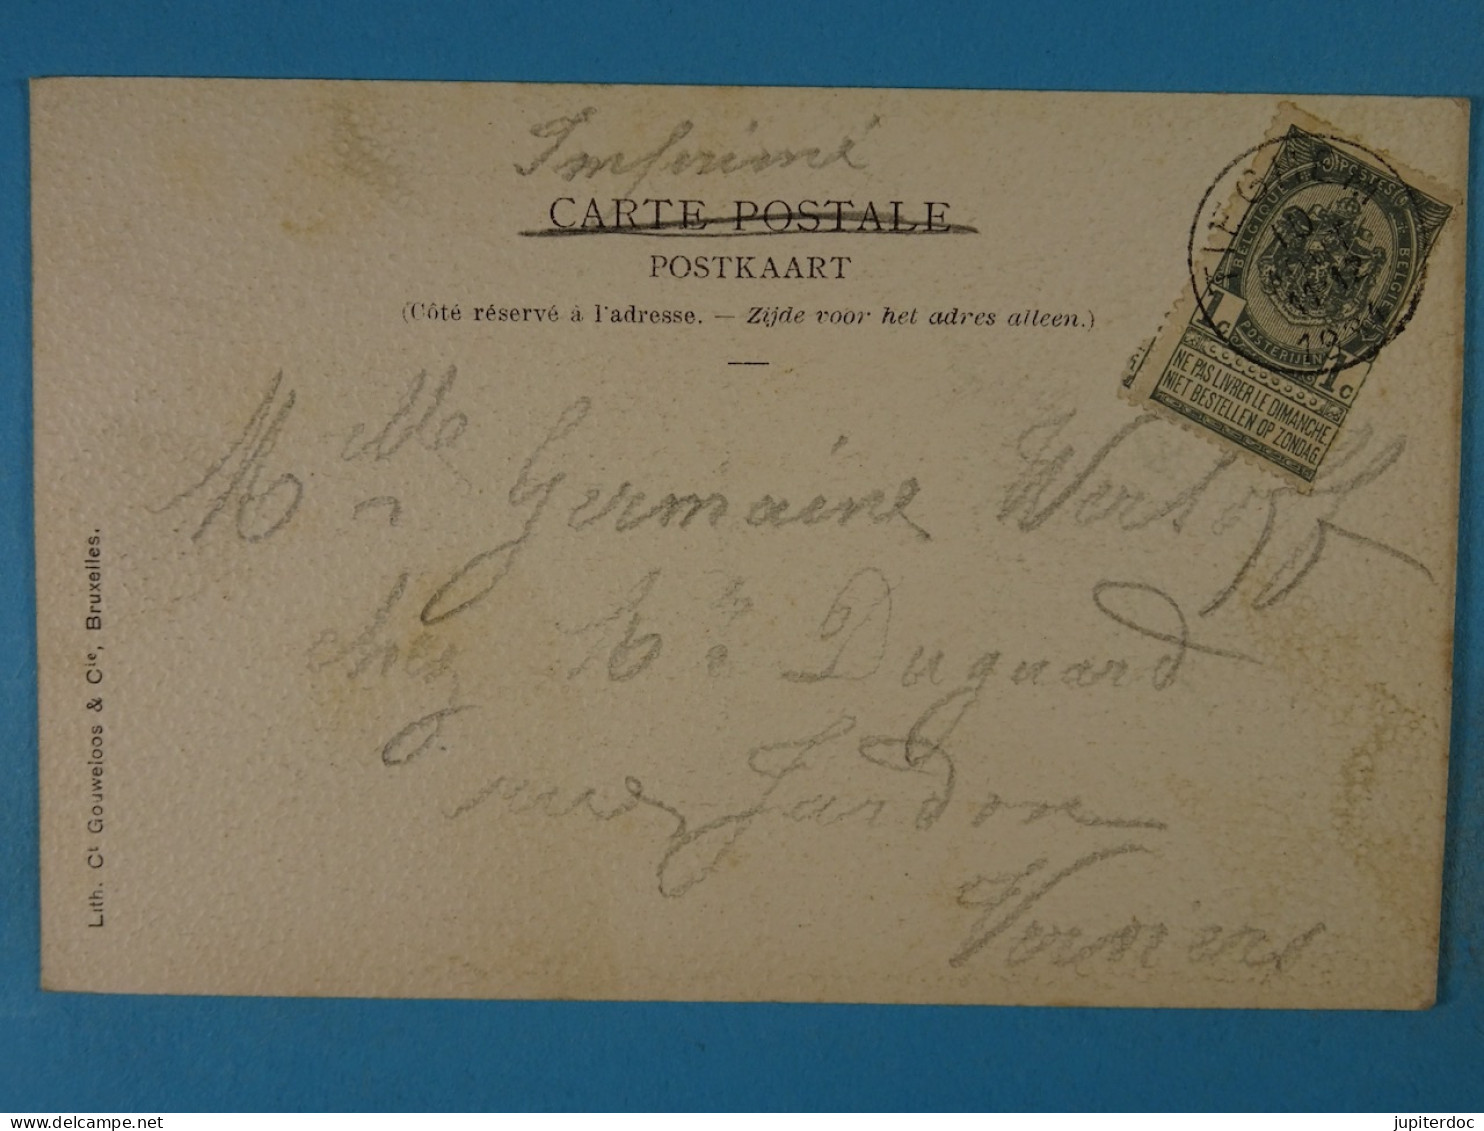 Imprimé
CARTE POSTALE
POSTKAART
(Côté réservé à l'adresse. — Zijde voor het adres alleen.)
BELGIQUE POSTES BELGIE
POSTERIJEN
1c 1c
NE PAS LIVRER LE DIMANCHE
NIET BESTELLEN OP ZONDAG
Mlle Germaine Werhoff
chez Mr Duguard
rue Jardon
Verviers
Lith. Ct Gouweloos & Cie, Bruxelles.
delcampe.net
jupiterdoc